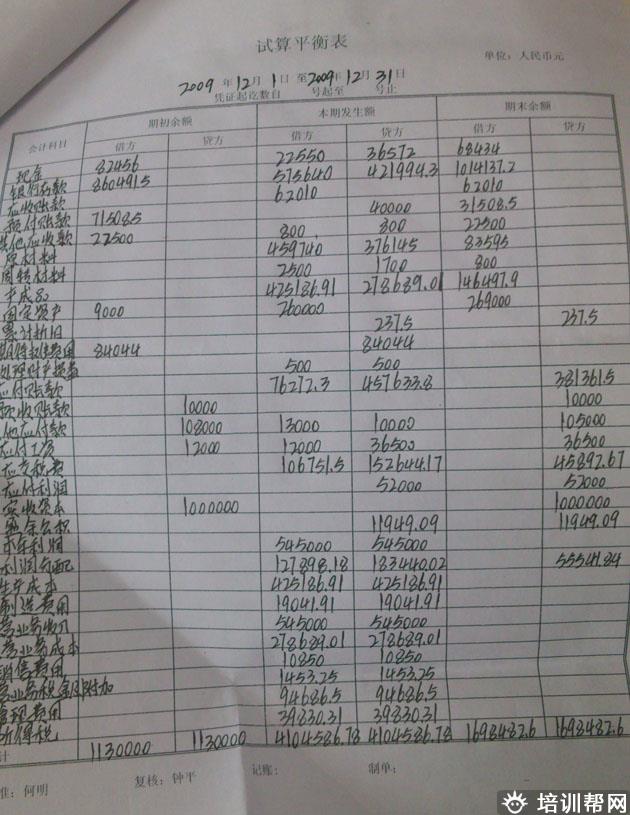 试算平衡表
单位：人民币元
2009 年 12 月 1 日 至 2009 年 12 月 31 日
凭证起讫数自 号起至 号止
会计科目 期初余额 本期发生额 期末余额
借方 贷方 借方 贷方 借方 贷方
现金 82456 22550 36572 68434
银行存款 860491.5 575640 421994.3 1014137.2
应收账款 62010 62010
预付账款 71508.5 40000 31508.5
其他应收款 22500 800 800 22500
原材料 459740 376145 83595
周转材料 2500 1700 800
产成品 425186.91 278689.01 146497.9
固定资产 9000 260000 269000
累计折旧 237.5 237.5
费用 84044 84044
500 500
应付账款 76272.3 457633.8 381361.5
预收账款 10000 10000
他应付款 108000 13000 10000 105000
应付工资 12000 12000 36500 36500
应交税费 106751.5 152644.17 45892.67
应付利润 52000 52000
实收资本 1000000 1000000
盈余公积 11949.09 11949.09
本年利润 545000 545000
利润分配 127898.18 183440.02 55541.84
生产成本 425186.91 425186.91
制造费用 19041.91 19041.91
营业务收入 545000 545000
营业务成本 278689.01 278689.01
销售费用 10850 10850
营业务税金及附加 1453.25 1453.25
管理费用 94686.5 94686.5
所得税 39830.31 39830.31
计 1130000 1130000 4104586.78 4104586.78 1698482.6 1698482.6
准：何明 复核：钟平 记账： 制单：
培训帮网